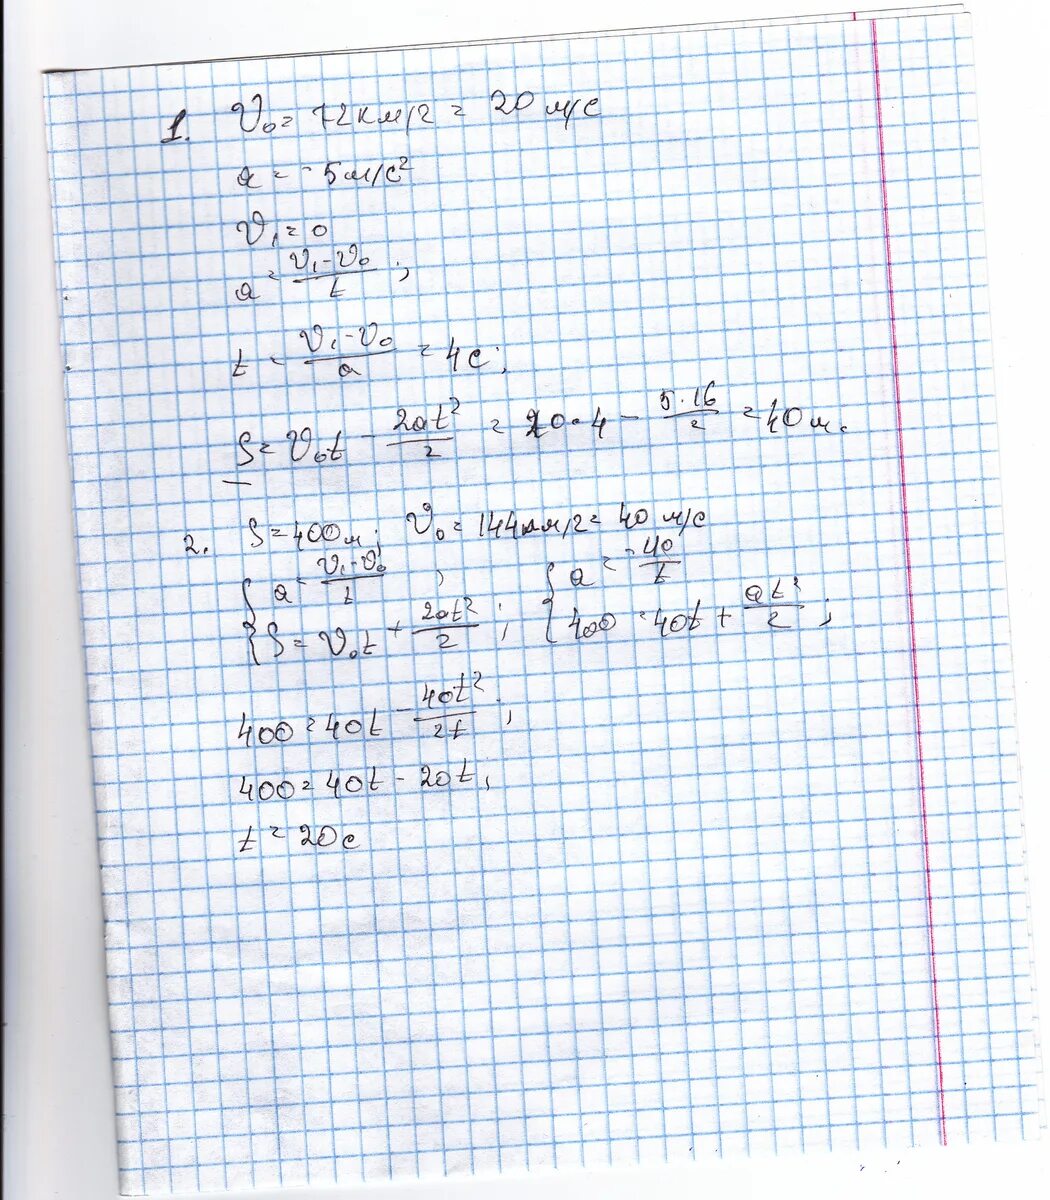 1. V₀ = 72 км/ч = 20 м/с
a = -5 м/с²
V₁ = 0
a = (V₁ - V₀)/t ;
t = (V₁ - V₀)/a = 4 с;
S = V₀t - 2at²/2 = 20·4 - 5·16/2 = 40 м.
2. S = 400 м; V₀ = 144 км/ч = 40 м/с
{ a = (V₁ - V₀)/t ; { a = -40/t
{ S = V₀t + 2at²/2 ; { 400 = 40t + at²/2 ;
400 = 40t - 40t²/2t ;
400 = 40t - 20t;
t = 20 с